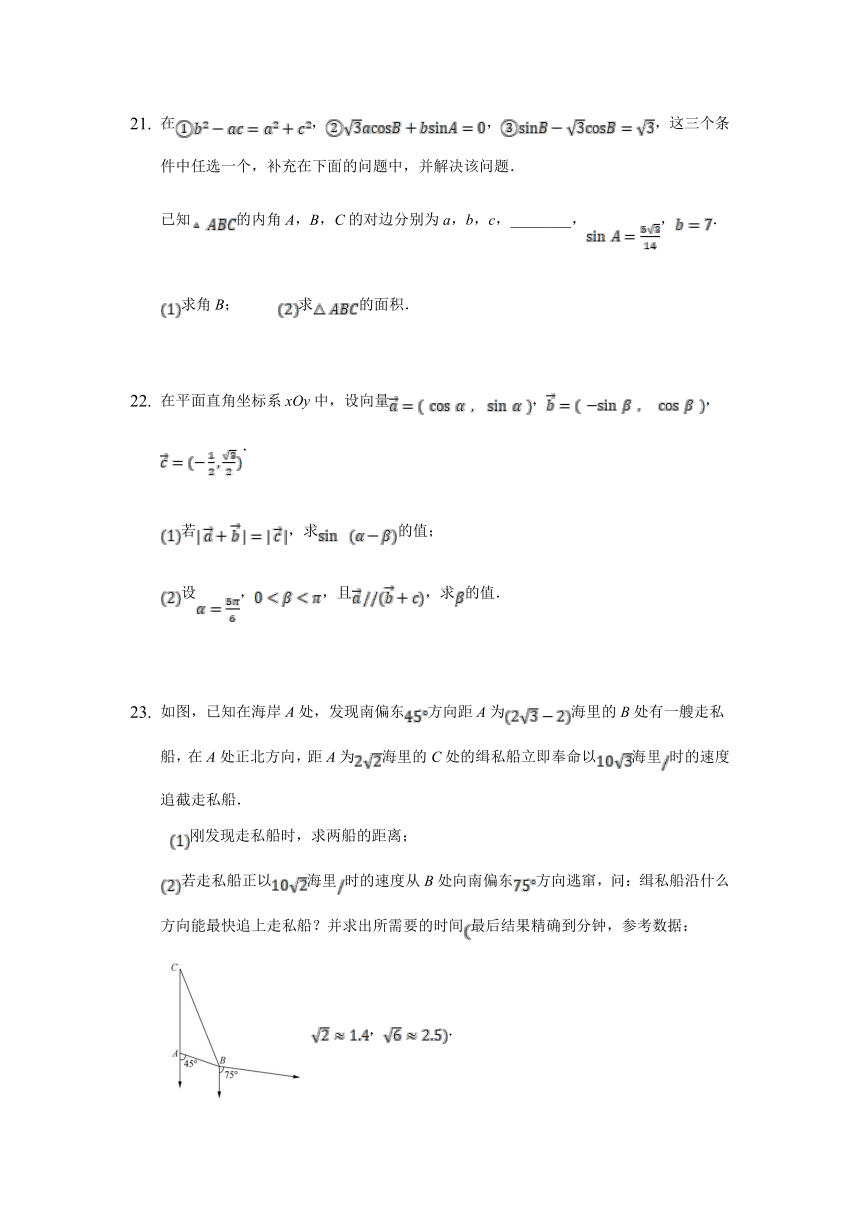 21. 在①b²－ac＝a²＋c²，②√3acosB＋bsinA＝0，③sinB－√3cosB＝√3，这三个条
件中任选一个，补充在下面的问题中，并解决该问题．
已知△ABC的内角A，B，C的对边分别为a，b，c，________，sin A＝5√3/14，b＝7．
(1)求角B； (2)求△ABC的面积．
22. 在平面直角坐标系xOy中，设向量a⃗＝( cos α ， sin α )，b⃗＝( －sin β ， cos β )，
c⃗＝(－1/2,√3/2)．
(1)若|a⃗＋b⃗|＝|c⃗|，求sin (α－β)的值；
(2)设α＝5π/6，0＜β＜π，且a⃗//(b⃗＋c)，求β的值．
23. 如图，已知在海岸A处，发现南偏东45°方向距A为(2√3－2)海里的B处有一艘走私
船，在A处正北方向，距A为2√2海里的C处的缉私船立即奉命以10√3海里/时的速度
追截走私船．
(1)刚发现走私船时，求两船的距离；
(2)若走私船正以10√2海里/时的速度从B处向南偏东75°方向逃窜，问：缉私船沿什么
方向能最快追上走私船？并求出所需要的时间(最后结果精确到分钟，参考数据：
√2≈1.4，√6≈2.5)．
C
A
45°
B
75°